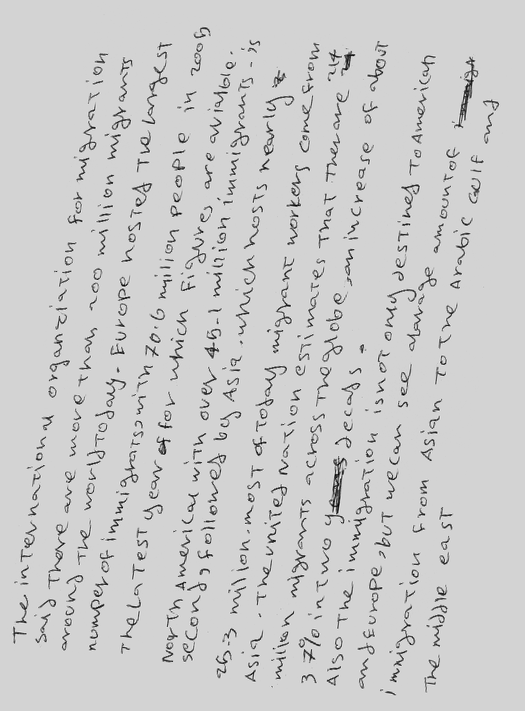 The international organziation for migration
said there are more than 200 million migrants
around the world today. Europe hosted the largest
number of immigrats, with 70.6 million people in 2005
the latest year for which figures are avialble.
North American with over 45.1 million immigrants - is
second, followed by Asia, which hosts nearly
25.3 million. most of today migrant workers come from
Asia. The united nation estimates that there are 214
million migrants across the globe, an increase of about
37% in two decads.
Also the immigration is not only destined to American
and Europe, but we can see alarage amount of
immigration from Asian to the Arabic Gulf and
the middle east